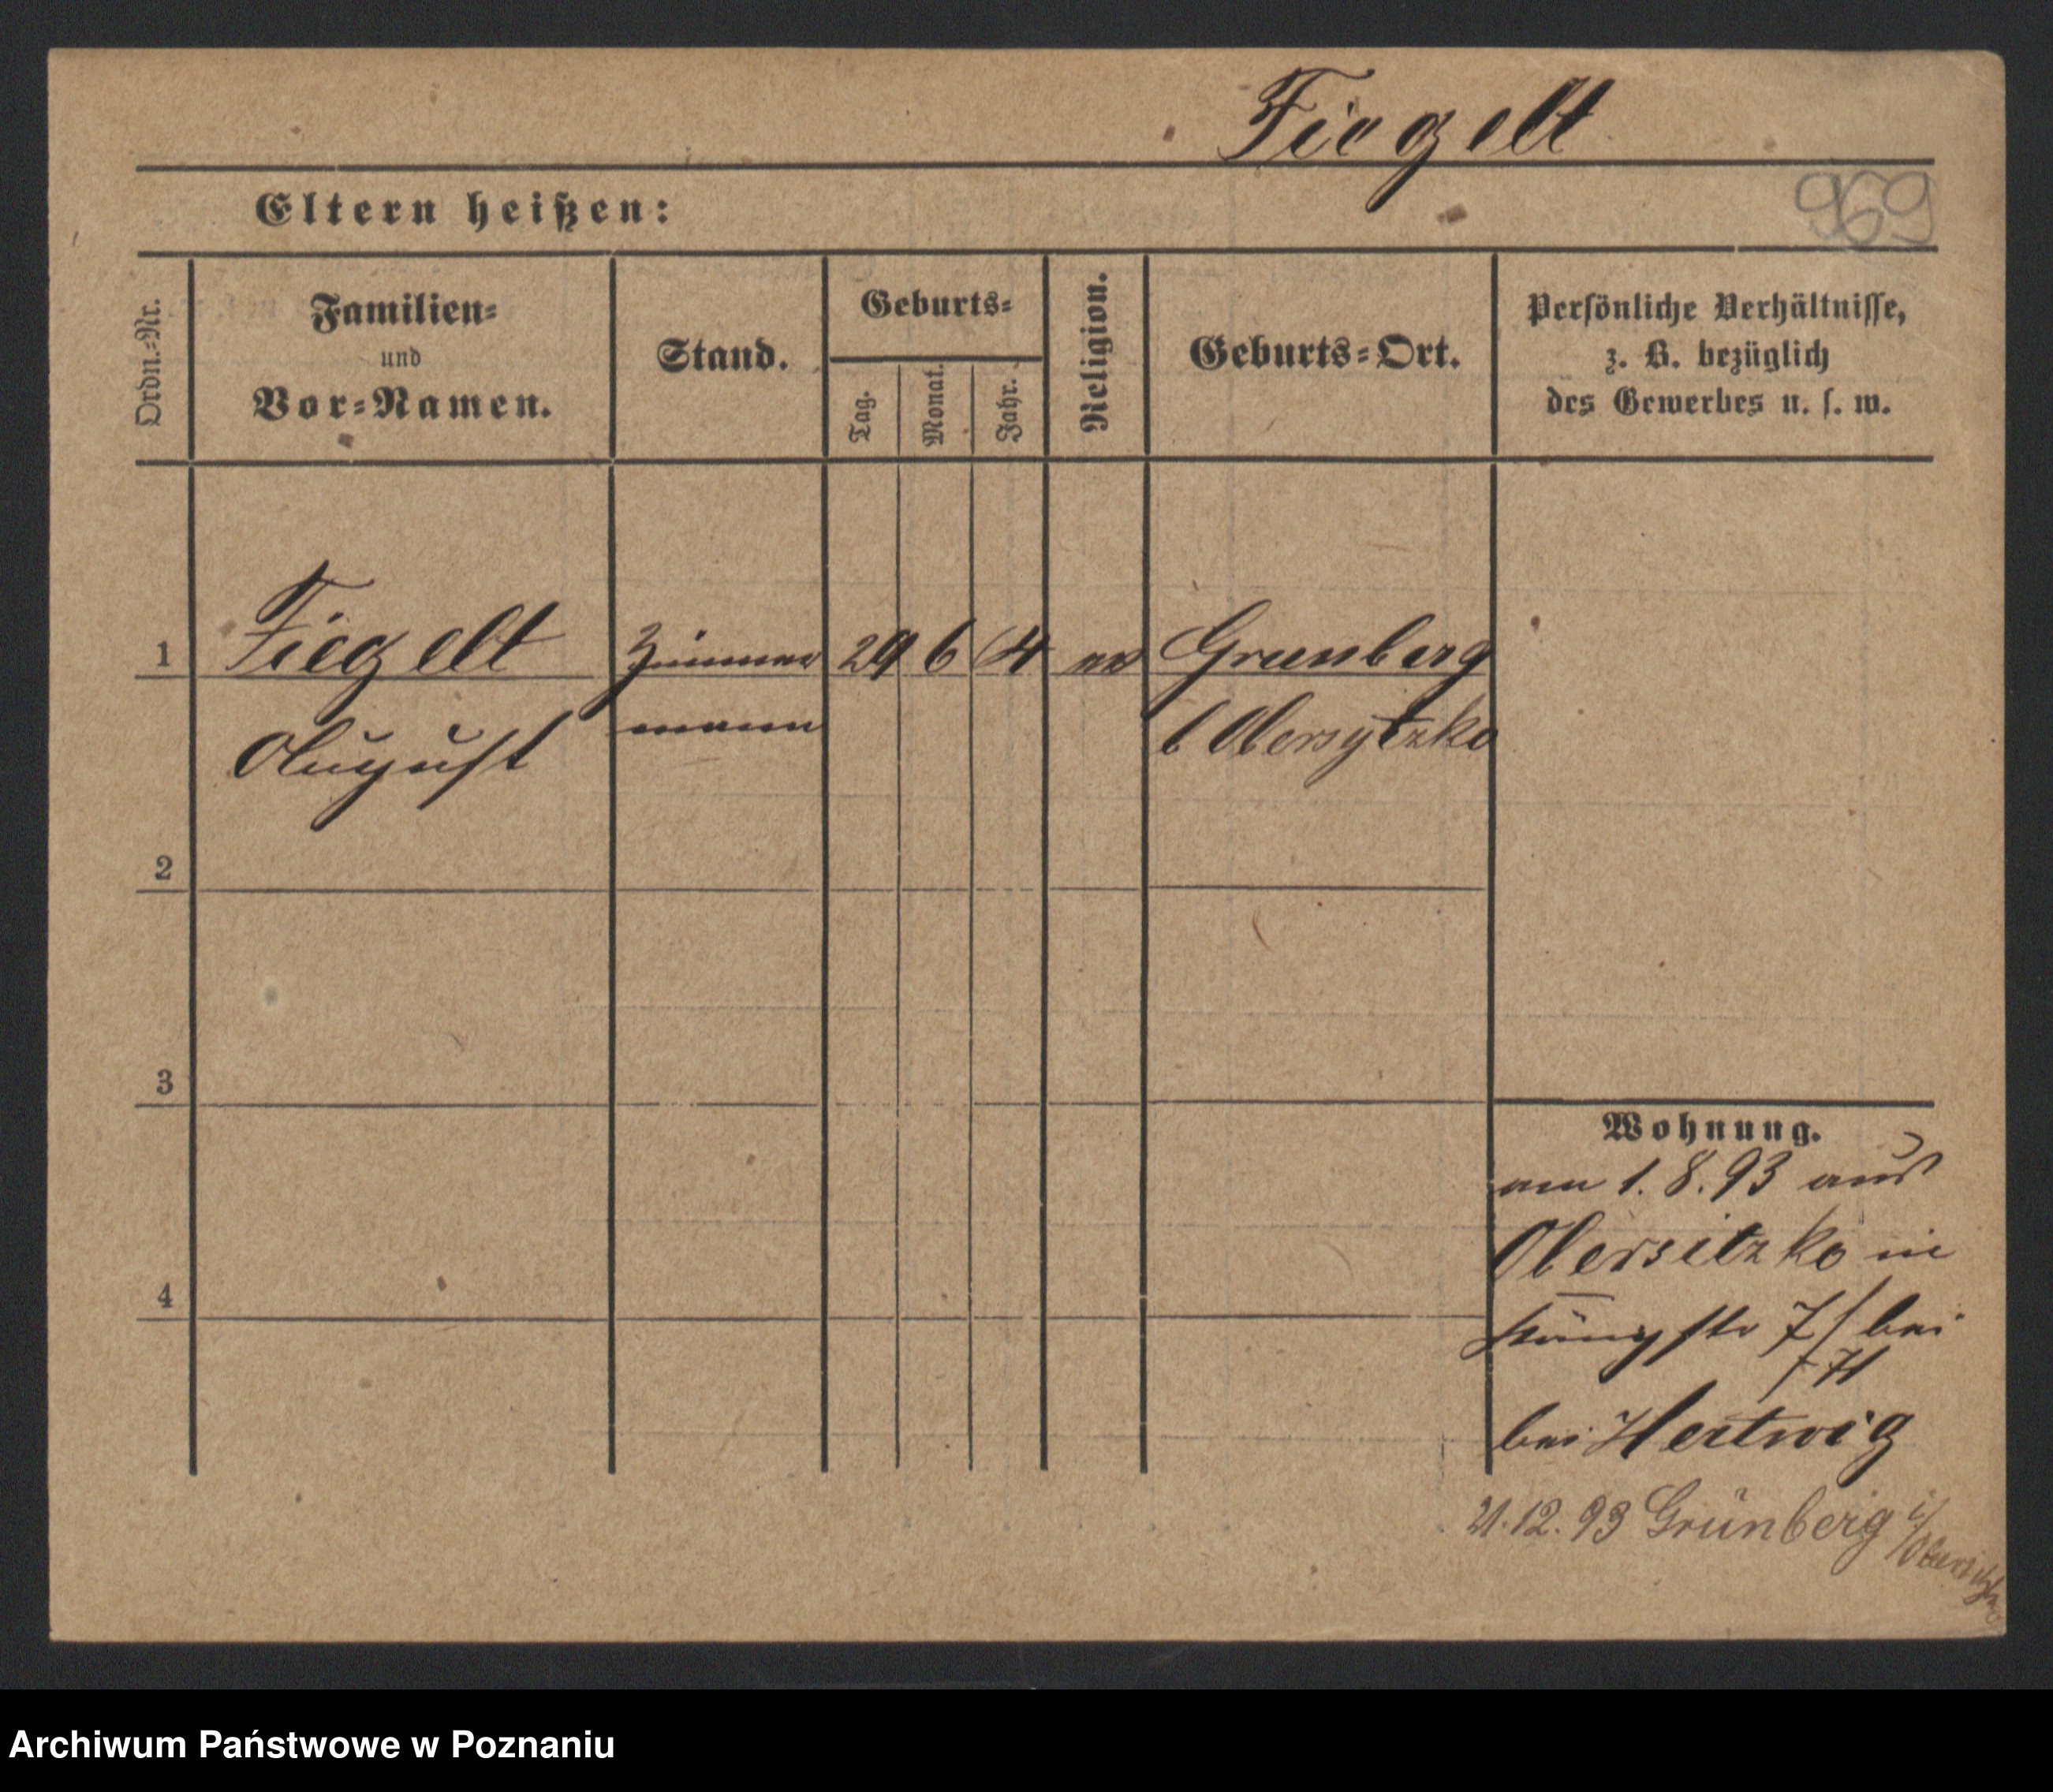 Fiegelt
969
Eltern heißen:
Ordn.-Nr.
Familien-
und
Vor-Namen.
Stand.
Geburts-
Tag.
Monat.
Jahr.
Religion.
Geburts-Ort.
Persönliche Verhältnisse,
z. B. bezüglich
des Gewerbes u. s. w.
1
Fiegelt
August
Zimmer
mann
29
6
64
ev
Grünberg
b Obersytzko
2
3
4
Wohnung.
am 1. 8. 93 aus
Obersitzko in
Königstr 7/ bei
bei Hertwig
21. 12. 93 Grünberg
Archiwum Państwowe w Poznaniu